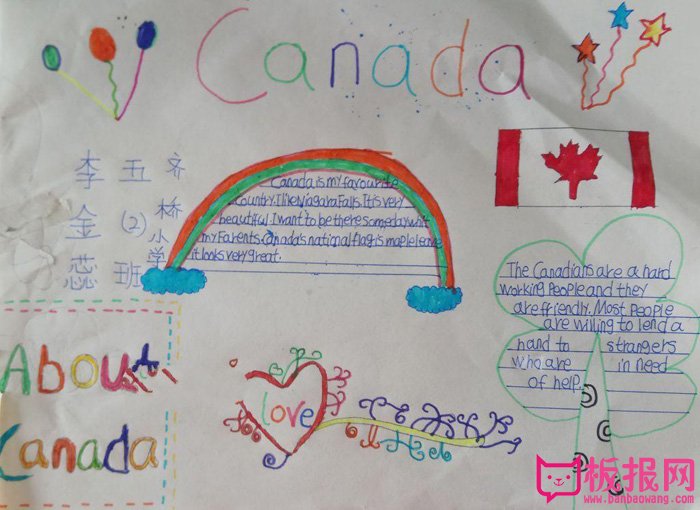 Canada
李金蕊
五(2)班
齐桥小学
Canada is my favourite
Country. I like Niagara Falls. It is very
beautiful. I want to be there someday whit
my Parents. Canada's national flag is maple leave
it looks very great.
The Canadians are a hard
working People and they
are friendly. Most People
are willing to lend a
hand to strangers
who are in need
of help.
About
Canada
love
板报网
www.banbaowang.com